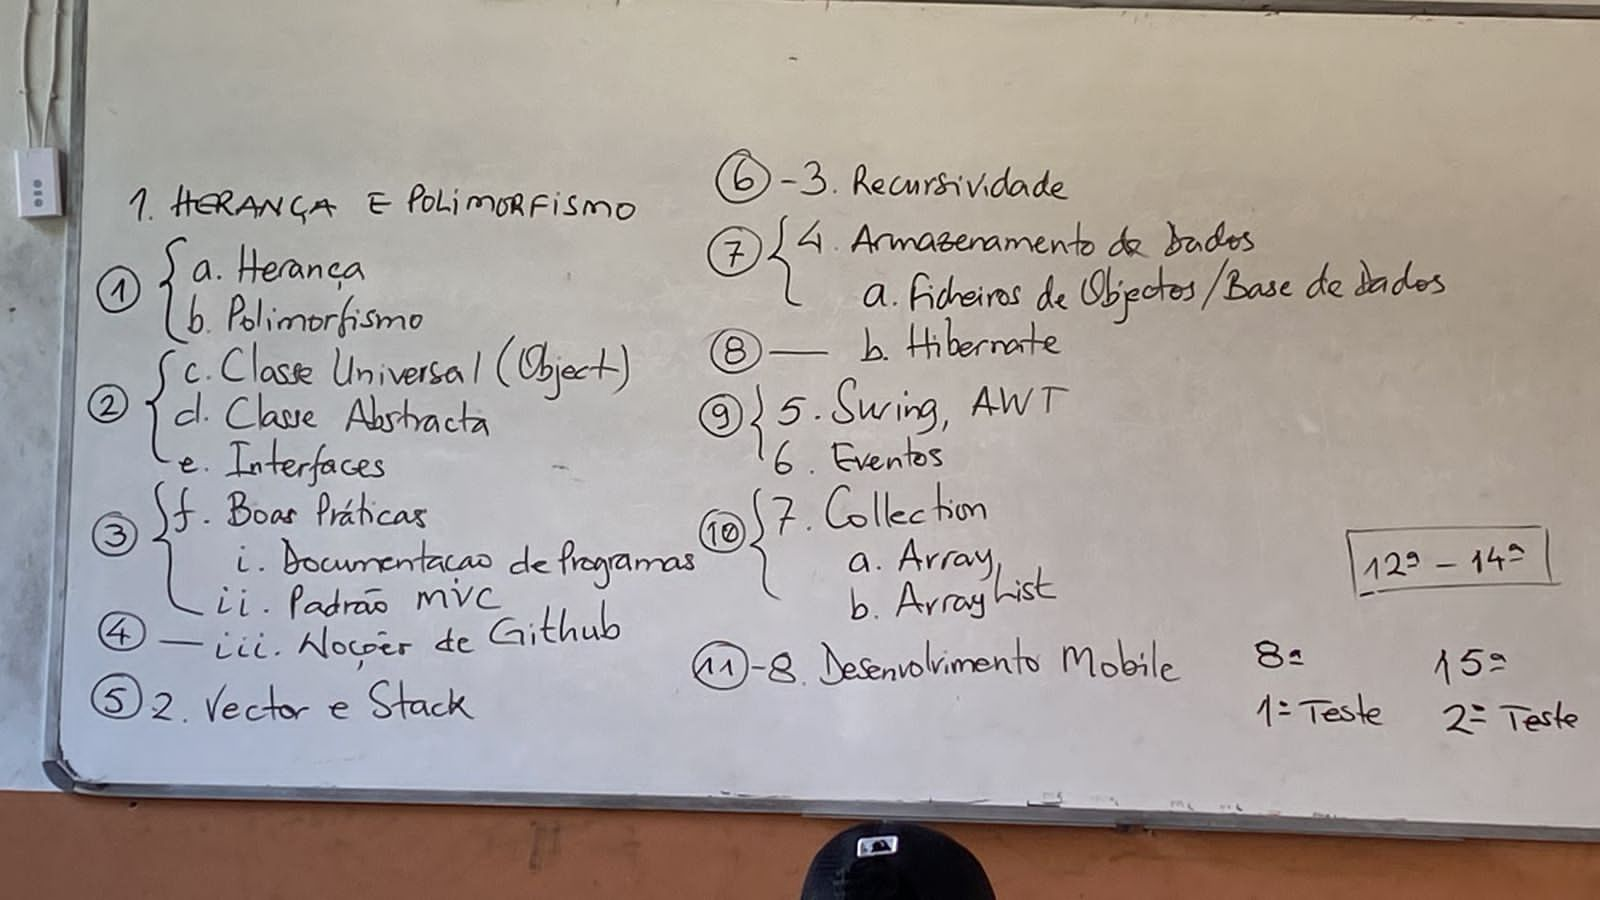 1. HERANÇA E POLIMORFISMO
① a. Herança
b. Polimorfismo
② c. Classe Universal (Object)
d. Classe Abstracta
e. Interfaces
③ f. Boas Práticas
i. Documentacao de Programas
ii. Padrão MVC
④ — iii. Noções de Github
⑤ 2. Vector e Stack
⑥ - 3. Recursividade
⑦ 4. Armazenamento de Dados
a. Ficheiros de Objectos/Base de Dados
⑧ — b. Hibernate
⑨ 5. Swing, AWT
6. Eventos
⑩ 7. Collection
a. Array,
b. ArrayList
⑪ - 8. Desenvolvimento Mobile
12ª - 14ª
8ª 15ª
1º Teste 2º Teste